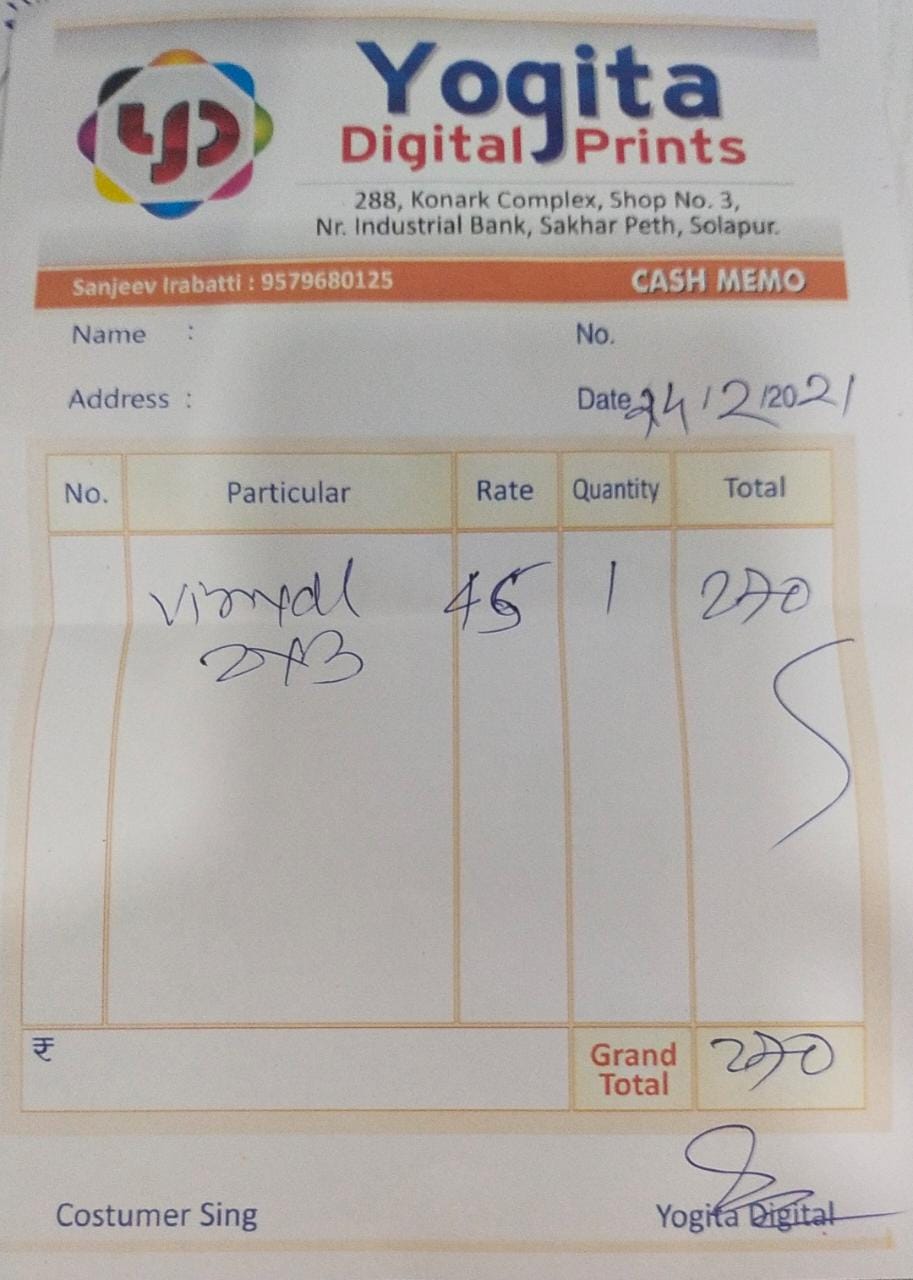 Yogita
Digital Prints
288, Konark Complex, Shop No. 3,
Nr. Industrial Bank, Sakhar Peth, Solapur.
Sanjeev Irabatti : 9579680125 CASH MEMO
Name : No.
Address : Date 24/2/2021
No. Particular Rate Quantity Total
45 1 270
2x3
₹ Grand Total 270
Costumer Sing Yogita Digital